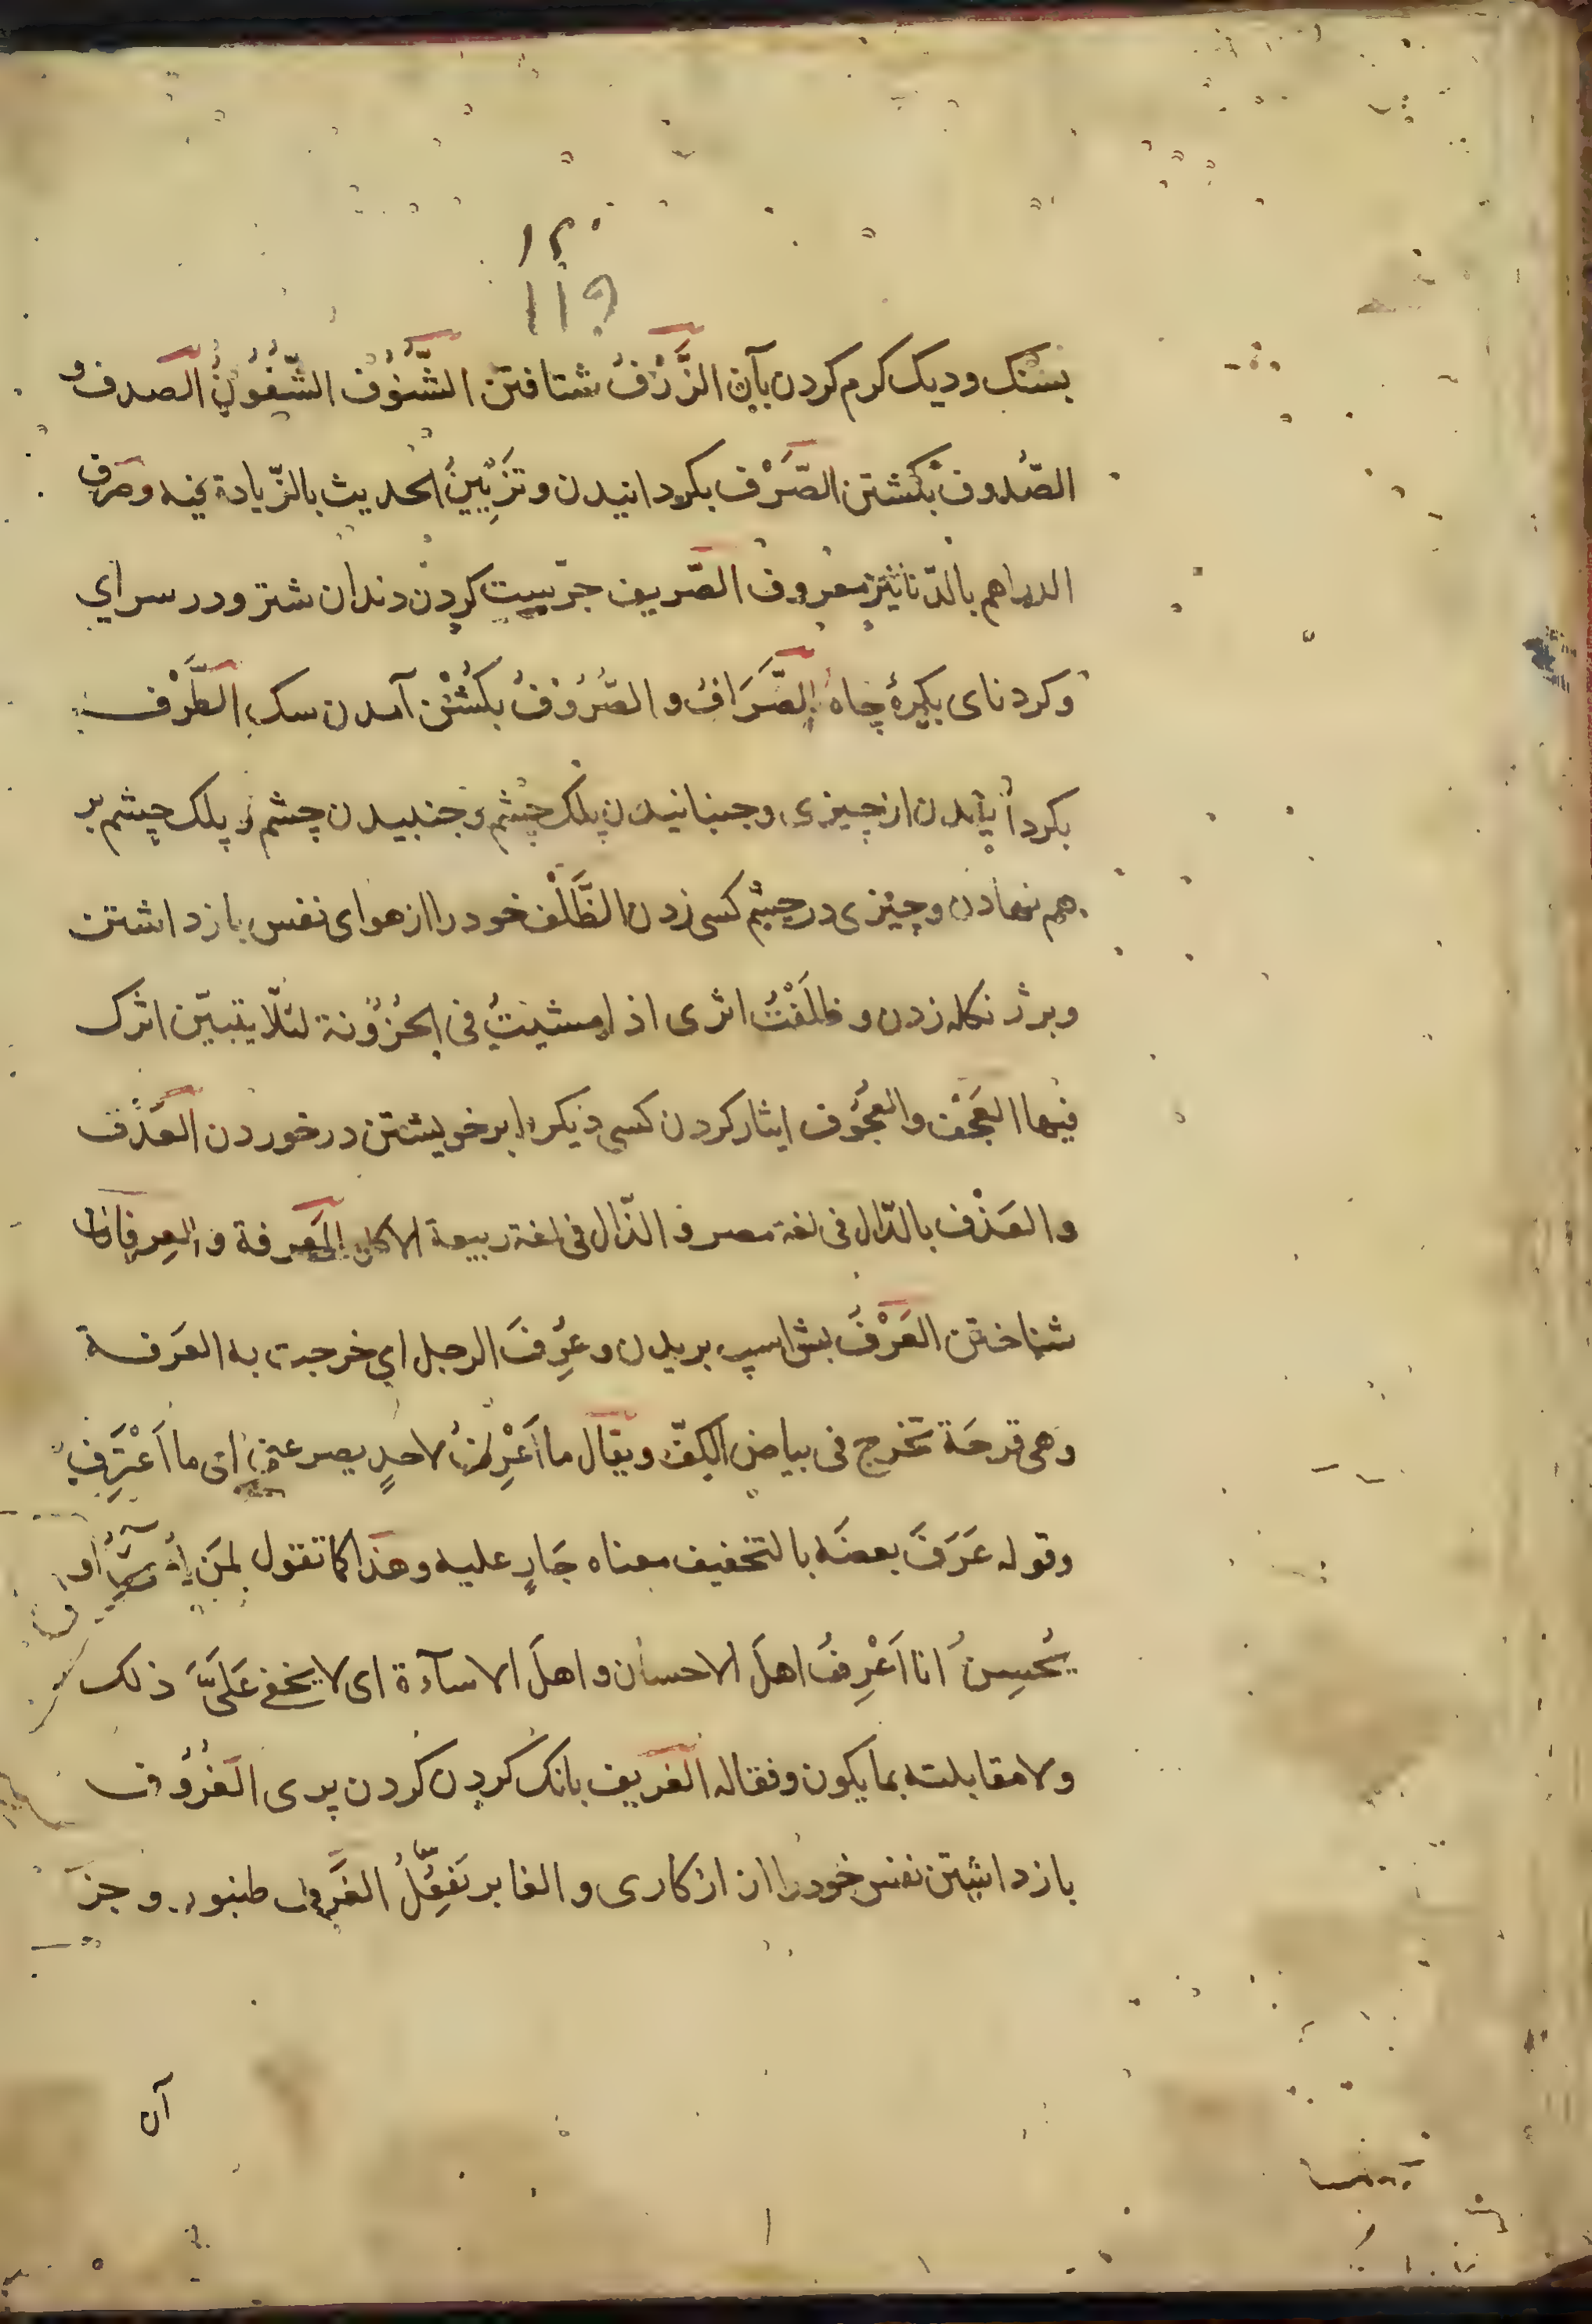 ۱۲۰
119
بسنک ودیک کرم کردن بآن الزَّرْفُ شتافتن الشُّنُوْف الشُّفُوْنُ الصدف و
الصُّدوف بکشتن الصَّرْف بکردانیدن وتَزْیِیْنُ الحدیث بالزّیادة فیه وصرف
الدراهم بالدّنانیر معروف الصَّریف جرّست کردن دندان شتر ودر سرای
وکردنای بکرهٔ چاه الصِّرَافُ و الصُّرُوْفُ بکُشْن آمدن سک الطَّرْف
بکردانیدن از چیزی وجنبانیدن پلک چشم وجنبیدن چشم و پلک چشم بر
هم نهادن وچیزی در چشم کسی زدن الظَّلْف خود را از هوای نفس بازداشتن
وبر ژنکله زدن وظلَفْتُ اثری اذا مشیتُ فی الحُزُوْنة لئلّا یتبیّن اثرک
فیها العَجْف والعُجُوْف ایثار کردن کسی دیکر را بر خویشتن در خوردن العَدْف
و العَذْف بالدّال فی لغة مضر و الذّال فی لغة ربیعة الاکل المَعرفة و العِرفان
شناختن العَرْفُ بش اسپ بریدن و عُرِفَ الرجل ای خرجت به العَرفة
وهی قرحَة تخرج فی بیاض الکفّ ویقال ما اَعْرِفُ لاحدٍ یصرعنی ای ما اَعْتَرِف
وقوله عَرَفَ بعضَه بالتخفیف معناه جَازٍ علیه وهذا کما تقول لمَن او
یُحسِنُ انا اَعْرِفُ اهلَ الاحسان و اهلَ الاسآءة ای لا یخفی عَلَیَّ ذلک
ولا مقابلته بما یکون وفقاله العَزیف بانک کردن کردن پری العُزُوْف
بازداشتن نفس خود را از کاری و الغابر یَفعُِلُ العَزف طنبور وجز
آن